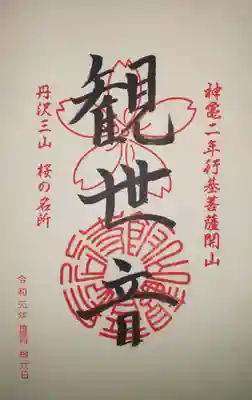 神亀二年行基菩薩開山
観世音
丹沢三山 桜の名所
令和元年